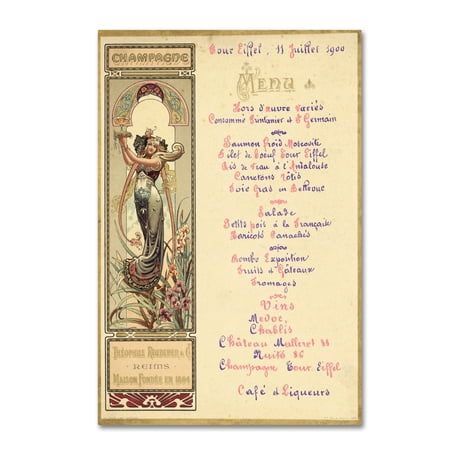 CHAMPAGNE
THÉOPHILE ROEDERER & Cº
REIMS
MAISON FONDÉE EN 1864
Tour Eiffel, 11 Juillet 1900
MENU
Hors d'œuvre Variés
Consommé Printanier et St Germain
Saumon froid Moscovite
Filet de Boeuf Tour Eiffel
Ris de Veau à l'Andalouse
Canetons Rôtis
Foie Gras en Bellevue
Salade
Petits pois à la Française
Haricots Panachés
Bombe Exposition
Fruits & Gâteaux
Fromages
Vins
Medoc,
Chablis
Château Malleret 88
Nuits 86
Champagne Tour Eiffel
Café & Liqueurs